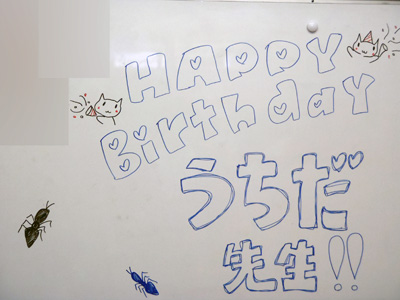 HAPPY
Birthday
うちだ
先生!!